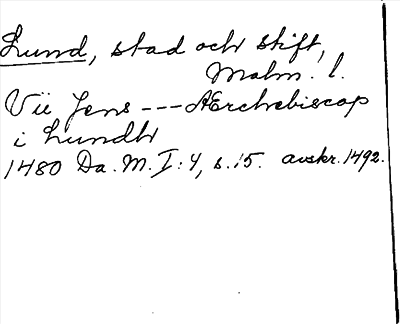 Lund, stad och stift,
Malm. l.
Vii Jens --- Ærchebiscop
i Lundh
1480 Da. M. I: 4, s. 15. avskr. 1492.